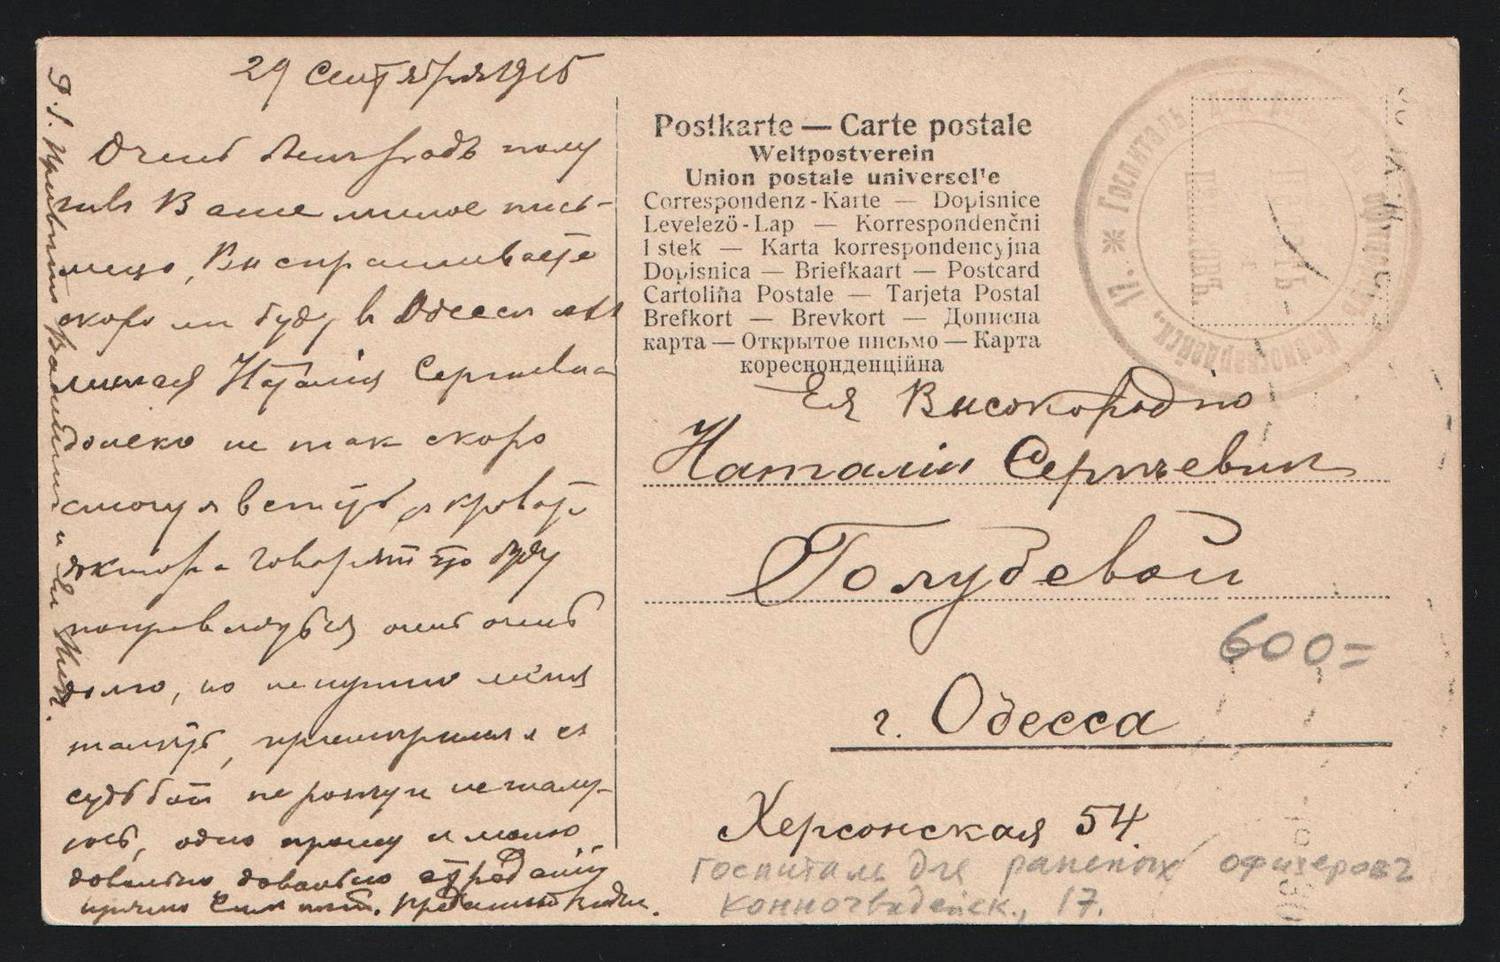 29 Сентября 1915
Очень был рад полу
чивъ Ваше милое пись-
мецо, Вы спрашиваете
скоро ли буду в Одессе
милая Наталія Сергиевна
далеко не так скоро
смогу я встать с кровати
доктора говорят что буду
поправляться очень очень
долго, но не нужно меня
жалеть, примирился я с
судьбой не ропчу и не жалу-
юсь, одно прошу и молю
довольно, довольно страданій
Преданный
P.S. Привет Вашим и
Postkarte — Carte postale
Weltpostverein
Union postale universelle
Correspondenz-Karte — Dopisnice
Levelező-Lap — Korrespondenční
lstek — Karta korrespondencyjna
Dopisnica — Briefkaart — Postcard
Cartoliña Postale — Tarjeta Postal
Brefkort — Brevkort — Дописна
карта — Открытое письмо — Карта
кореснонденційна
* Госпиталь для офицеровъ Конногвардейск., 17.
Ея Высокородію
Наталіи Сергѣевнѣ
Голубевой
600=
г. Одесса
Херсонская 54.
госпиталь для раненых офицеровъ
конногвадейск., 17.